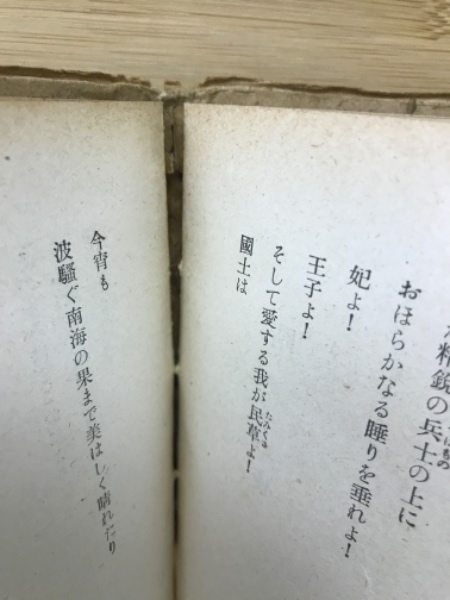 精鋭の兵士の上に
おほらかなる睡りを垂れよ！
妃よ！
王子よ！
そして愛する我が民草よ！
國土は
今宵も
波騷ぐ南海の果まで美はしく晴れたり